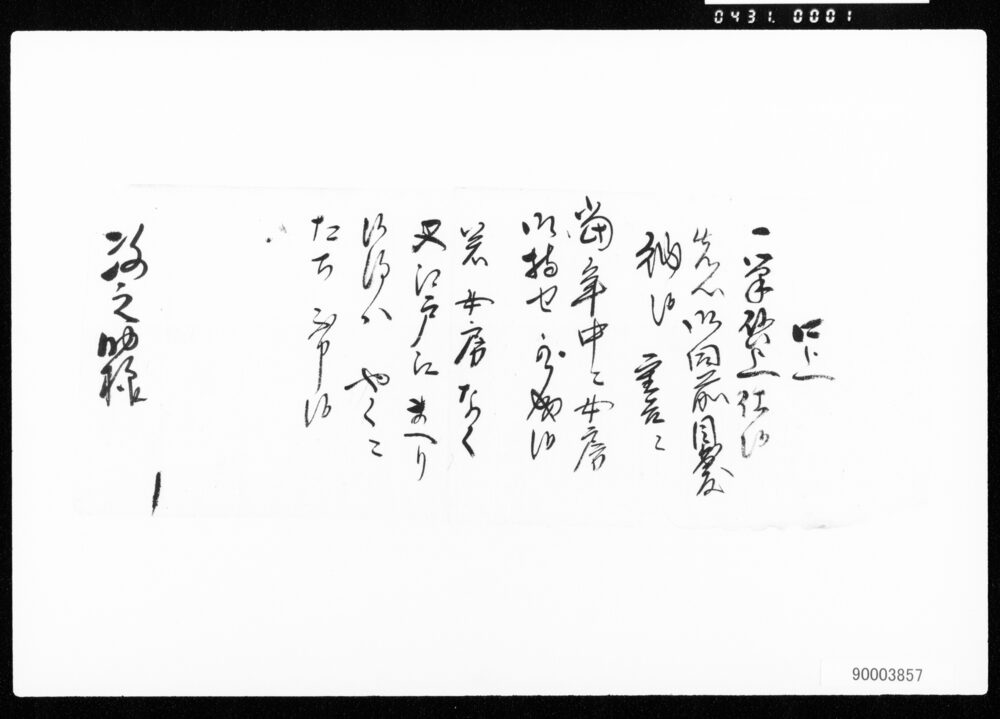 0431.0001
口上
一筆啓上仕候
先以御同前目出度
納候
當年中ニ女房
御持せ可被成候
若女房なく
又江戸江まへり
候得ハやくニ
たち不申候
之助様
90003857